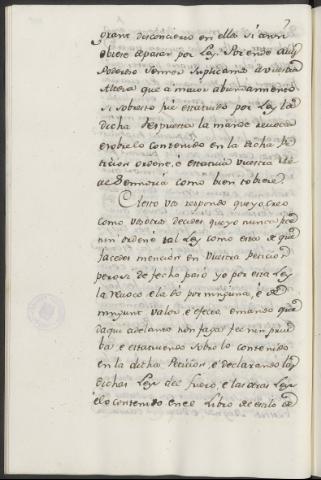 7
grave disconcierto en ella si ansi
obiese apasar por Ley Porende muy
Poderoso Sennor suplicamos a vuestra
Alteza que a maior abundamiento
si sobresto fue estatuido por Ley la
dicha Respuesta la mande revocar
e sobre lo contenido en la dicha Pe
ticion ordene, e estatuia vuestra
Sennoria como bien tobiere
A esto vos respondo que yo creo
como vosotros decides que yo nunca
nin ordene tal Ley como esta de que
facedes mencion en vuestra Peticion
pero si de fecho pasó yo por esta Ley
la revoco e la do por ninguna, e de
ningunt valor e efecto, e mando que
daqui adelante non faga fee nin prue
ba e estatuiendo sobre lo contenido
en la dicha Peticion, e declarando las
dichas Leys del fuero, e las otras Leys
e lo contenido en el Libro del estilo de